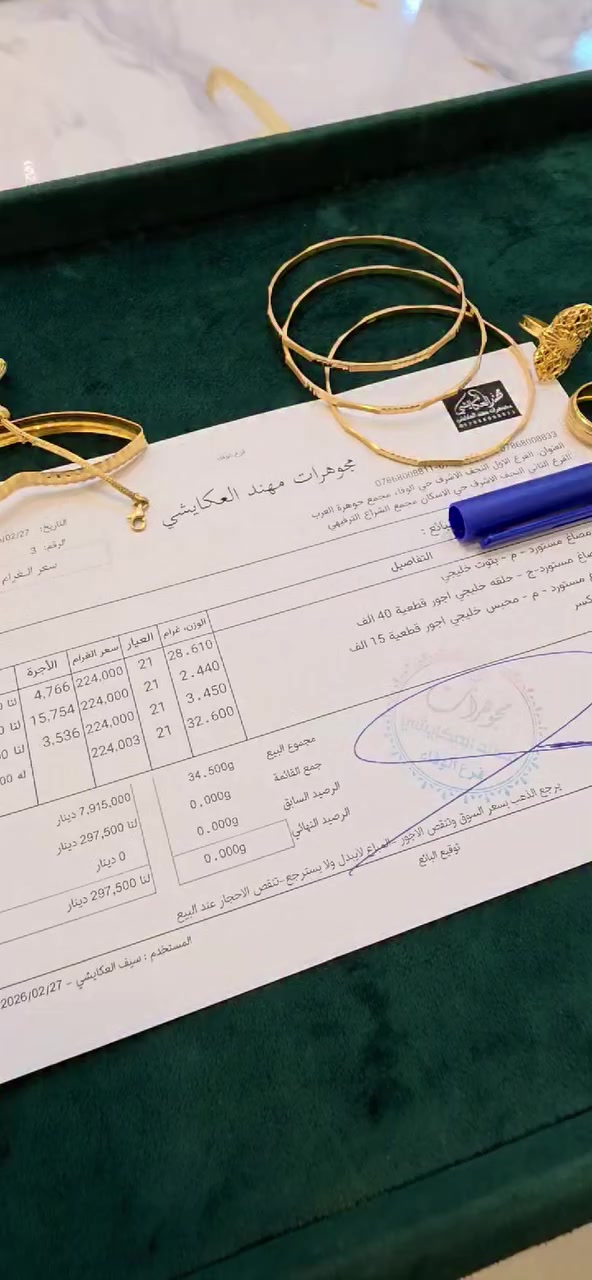 فرع الوفاء
مجوهرات مهند العكايشي
07868008833 - 07868008811
العنوان: الفرع الاول النجف الاشرف حي الوفاء مجمع جوهرة العرب
الفرع الثاني النجف الاشرف حي الاسكان مجمع الشراع الترفيهي
التاريخ: 02/27/
الرقم: 3
سعر الغرام
التفاصيل الوزن، غرام العيار سعر الغرام الأجرة
مصاغ مستورد - م - بتوت خليجي 28.610 21 224,000 4,766 لنا
مستورد-ح - حلقه خليجي اجور قطعية 40 الف 2.440 21 224,000 15,754 لنا
مستورد - م - محبس خليجي اجور قطعية 15 الف 3.450 21 224,000 3,536 لنا
كسر 32.600 21 224,003 له
مجموع البيع 34.500g 7,915,000 دينار
جمع القائمة 0.000g لنا 297,500 دينار
الرصيد السابق 0.000g 0 دينار
الرصيد النهائي 0.000g لنا 297,500 دينار
مجوهرات
مهند العكايشي
فرع الوفاء
يرجع الذهب بسعر السوق وتنقص الاجور - المباع لايبدل ولا يسترجع -تنقص الاحجار عند البيع
توقيع البائع
المستخدم : سيف العكايشي - 2026/02/27